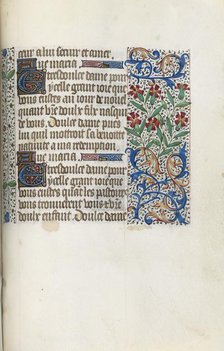 eur a lui seruir et amer.
Aue maria.
Tresdoulce dame pour
ycelle grant ioie que
vous eustes au iour de nouel
quant vre doulx filz nasqui
de vous. Doulce dame pries
qui mottroit sa benoite
natiuite a ma redemption.
Aue maria.
Tresdoulce dame pour
ycelle grant ioie que
vous eustes quant les pastours
vous trouuerent vous
doulx enfant. Doulce dame